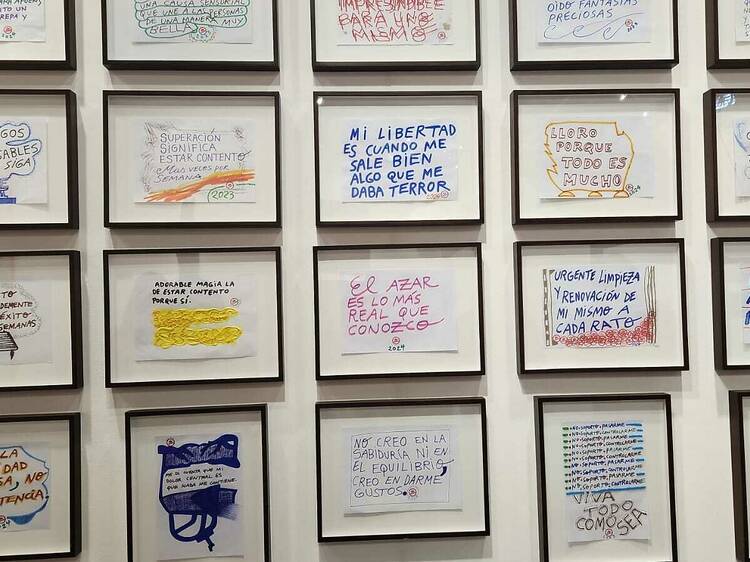 UNA CAUSA SENSORIAL
QUE UNE A LAS PERSONAS
DE UNA MANERA MUY
BELLA
IMPRESCINDIBLE
PARA UNO
MISMO
OIDO FANTASIAS
PRECIOSAS
SUPERACIÓN
SIGNIFICA
ESTAR CONTENTO
MAS VECES POR
SEMANA
2023
MI LIBERTAD
ES CUANDO ME
SALE BIEN
ALGO QUE ME
DABA TERROR
LLORO
PORQUE
TODO ES
MUCHO
SIGA
ADORABLE MAGIA LA
DE ESTAR CONTENTO
PORQUE SÍ.
El AZAR
ES LO MÁS
REAL QUE
CONOZCO
2024
URGENTE LIMPIEZA
Y RENOVACIÓN DE
MI MISMO A
CADA RATO
ÉXITO
SEMANAS
LA
NO
ME DI CUENTA QUE MI
DOLOR CENTRAL ES
QUE NADA ME CONTIENE.
NO CREO EN LA
SABIDURÍA NI EN
EL EQUILIBRIO,
CREO EN DARME
GUSTOS.
NO SOPORTO PALARME
NO SOPORTO CONTROLARME
NO SOPORTO PALARME
NO SOPORTO CONTROLARME
NO SOPORTO PALARME
NO SOPORTO CONTROLARME
NO SOPORTO PALARME
NO SOPORTO CONTROLARME
VIVA
TODO
COMO SEA